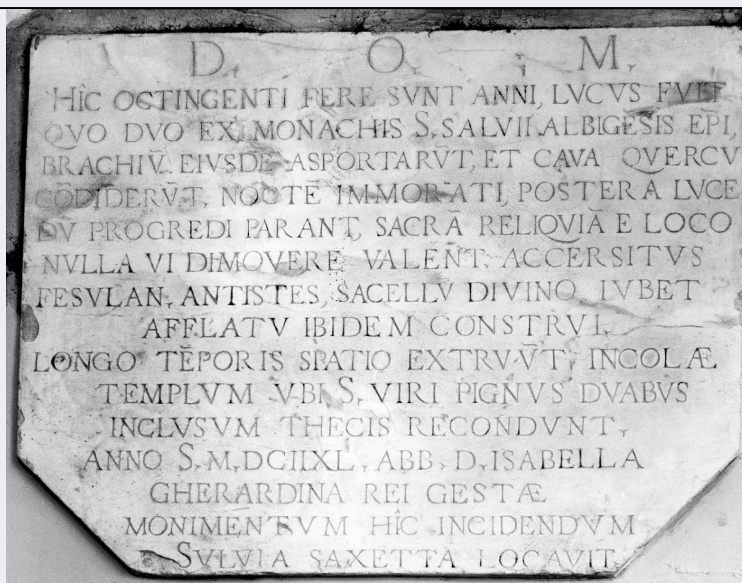 D. O. M.
HÎC OCTINGENTI FERE SVNT ANNI, LVCVS FVIT
QVO DVO EX MONACHIS S. SALVII ALBIGẼSIS EP̃I,
BRACHIV̄ EIVSDẼ ASPORTARV̄T, ET CAVA QVERCV
CÕDIDERV̄T, NOCTE IMMORATI, POSTERA LVCE
DV̄ PROGREDI PARANT, SACRÃ RELIQVIÃ E LOCO
NVLLA VI DIMOVERE VALENT, ACCERSITVS
FESVLAN. ANTISTES, SACELLV̄ DIVINO IVBET
AFFLATV IBIDEM CONSTRVI,
LONGO TẼPORIS SPATIO EXTRVV̄T, INCOLÆ
TEMPLVM VBI S. VIRI PIGNVS DVABVS
INCLVSVM THECIS RECONDVNT,
ANNO S. M. DCIIXL, ABB. D. ISABELLA
GHERARDINA REI GESTÆ
MONIMENTVM HÎC INCIDENDVM
SYLVIA SAXETTA LOCAVIT